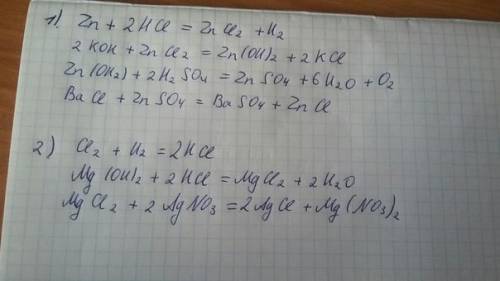 1) Zn + 2HCl = ZnCl2 + H2
2 KOH + ZnCl2 = Zn(OH)2 + 2KCl
Zn(OH2) + 2H2SO4 = ZnSO4 + 6H2O + O2
BaCl + ZnSO4 = BaSO4 + ZnCl
2) Cl2 + H2 = 2HCl
Mg(OH)2 + 2HCl = MgCl2 + 2H2O
MgCl2 + 2AgNO3 = 2AgCl + Mg(NO3)2